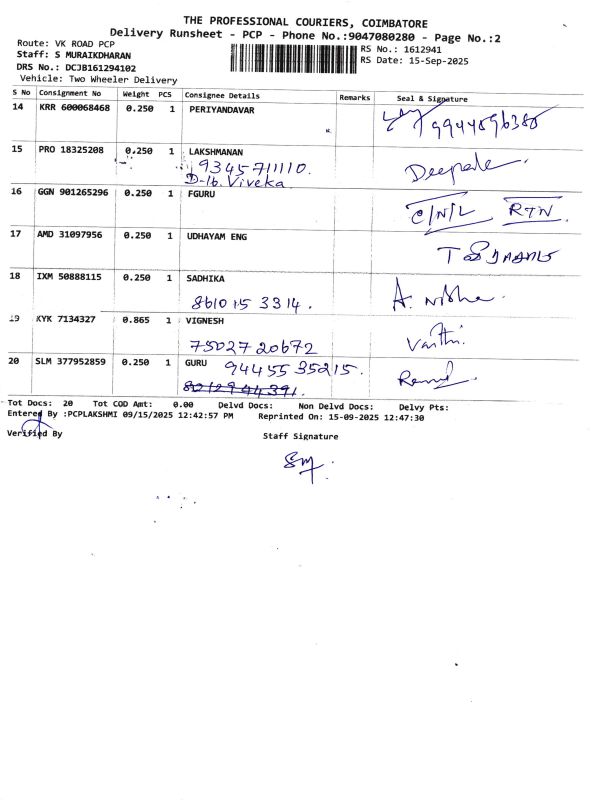 THE PROFESSIONAL COURIERS, COIMBATORE
Delivery Runsheet - PCP - Phone No.:9047080280 - Page No.:2
Route: VK ROAD PCP
Staff: S MURAIKDHARAN
DRS No.: DCJB161294102
Vehicle: Two Wheeler Delivery
RS No.: 1612941
RS Date: 15-Sep-2025
S No Consignment No Weight PCS Consignee Details Remarks Seal & Signature
14 KRR 600068468 0.250 1 PERIYANDAVAR
15 PRO 18325208 0.250 1 LAKSHMANAN
9345711110.
D-16. Viveka.
16 GGN 901265296 0.250 1 FGURU C/N/L RTN
17 AMD 31097956 0.250 1 UDHAYAM ENG
18 IXM 50888115 0.250 1 SADHIKA
8610153314.
19 KYK 7134327 0.865 1 VIGNESH
7502720672
20 SLM 377952859 0.250 1 GURU 9445535215.
Tot Docs: 20 Tot COD Amt: 0.00 Delvd Docs: Non Delvd Docs: Delvy Pts:
Entered By :PCPLAKSHMI 09/15/2025 12:42:57 PM Reprinted On: 15-09-2025 12:47:30
Verified By
Staff Signature